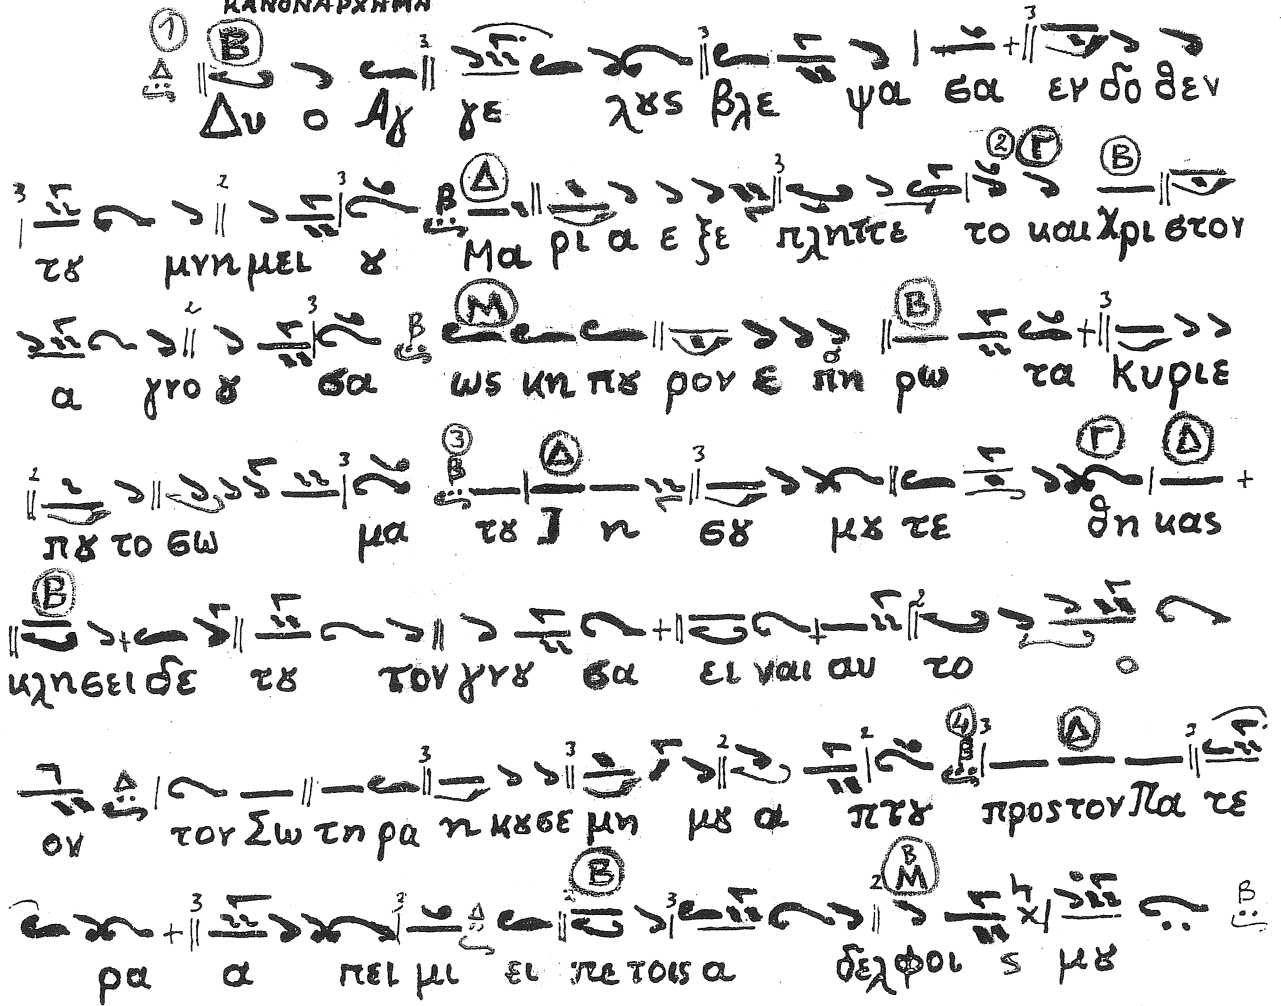 ΚΑΝΟΝΑΡΧΗΜΑ
Δυ ο Αγ γε λȣς βλε ψα σα εν δο θεν
τȣ μνη μει ȣ Μα ρι α ε ξε πλητ τε το και Χρι στον
α γνο ȣ σα ως κη πȣ ρον ε πη ρω τα Κυ ρι ε
πȣ το σω μα τȣ Ι η σȣ μȣ τε θη κας
κλη σει δε τȣ τον γνȣ σα ει ναι αυ το ο
ον τον Σω τη ρα η κȣ σε μη μȣ α πτȣ προς τον Πα τε
ρα α πει μι ει πε τοις α δελφοι ς μȣ